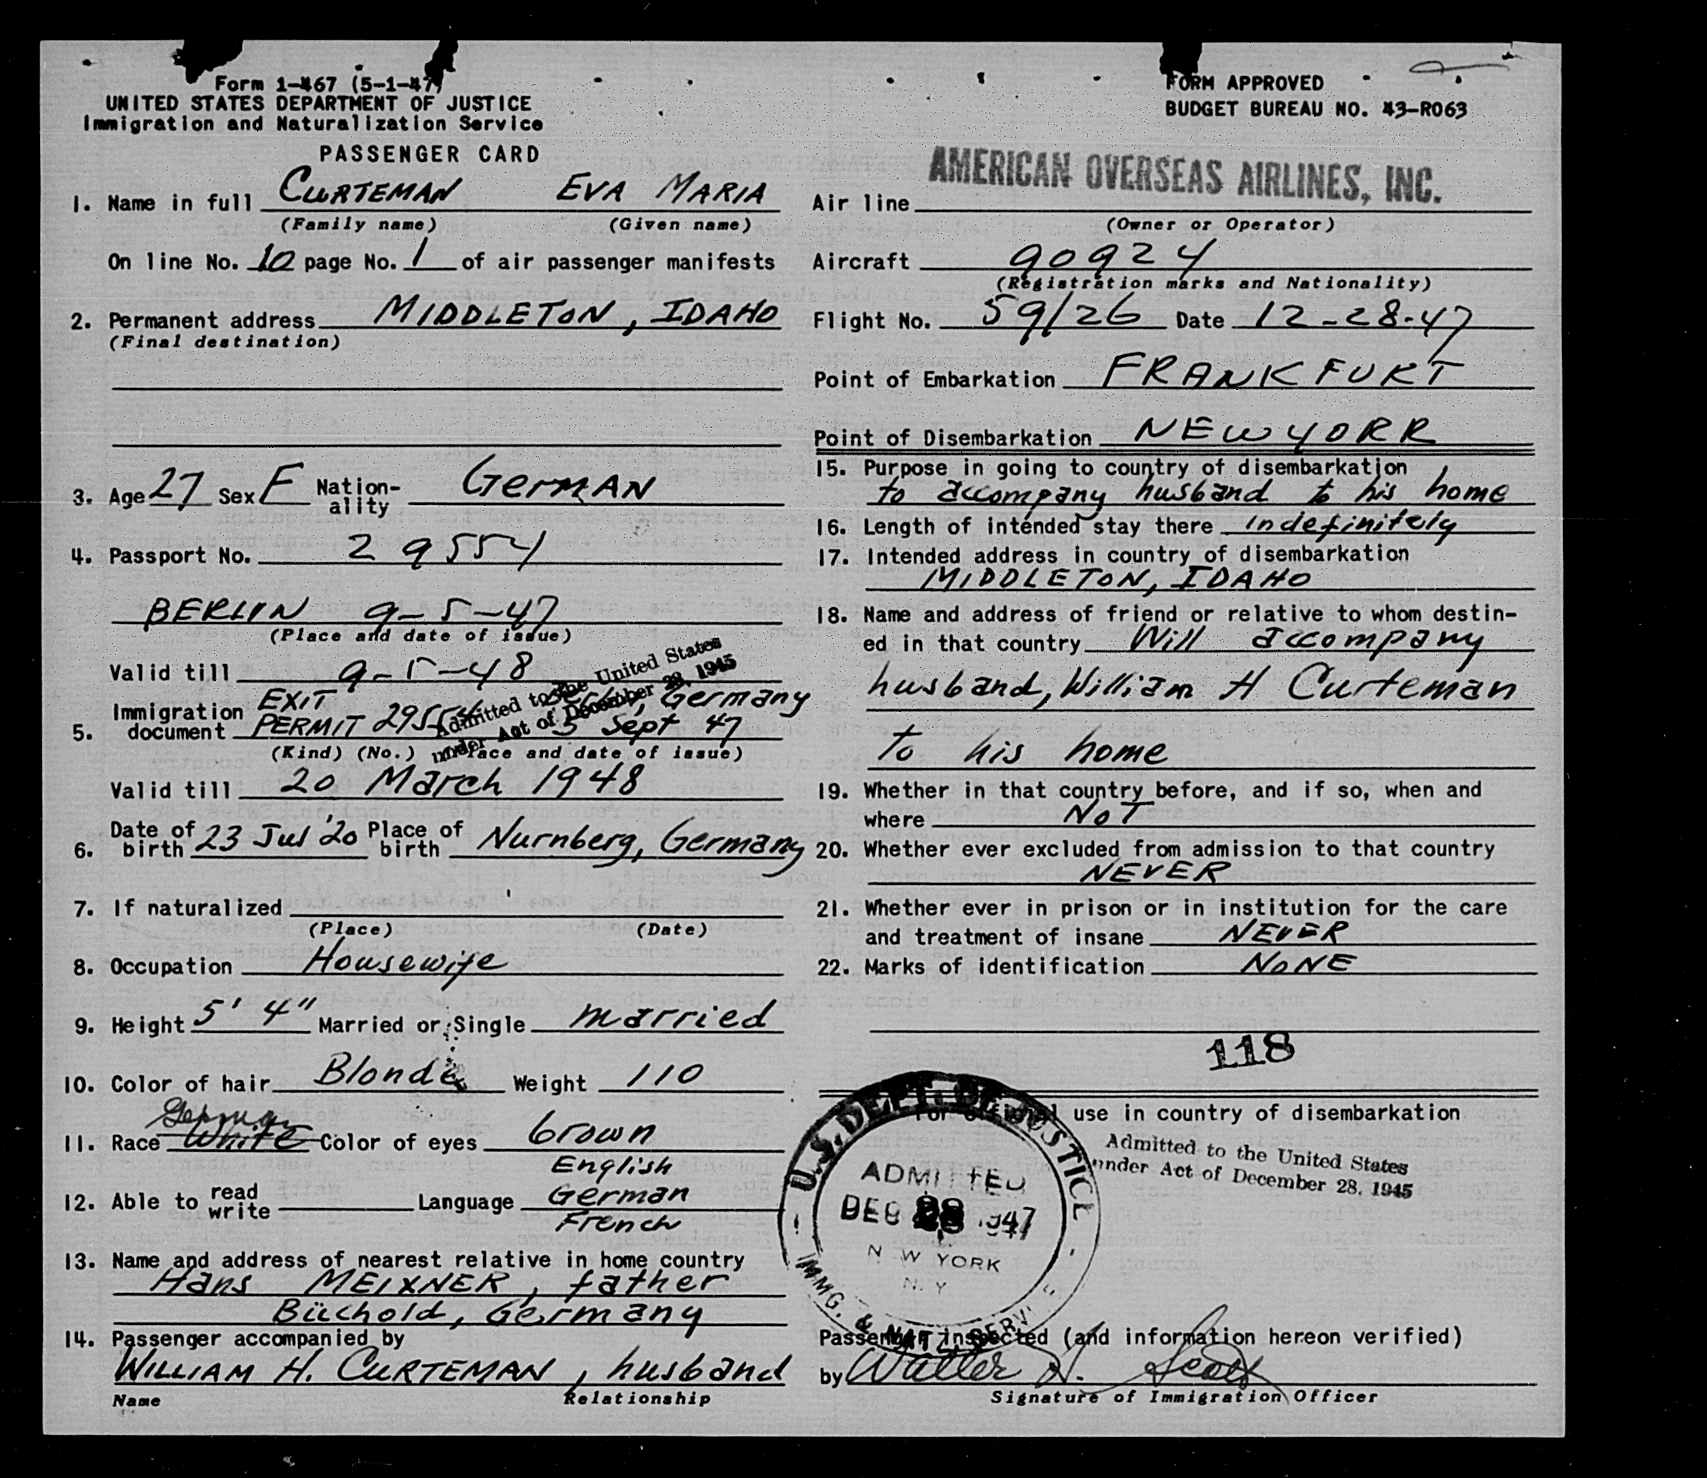 Form 1-467 (5-1-47)
UNITED STATES DEPARTMENT OF JUSTICE
Immigration and Naturalization Service
PASSENGER CARD
FORM APPROVED
BUDGET BUREAU NO. 43-R063
1. Name in full CURTEMAN EVA MARIA
(Family name) (Given name)
On line No. 10 page No. 1 of air passenger manifests
2. Permanent address MIDDLETON, IDAHO
(Final destination)
3. Age 27 Sex F Nation-ality GERMAN
4. Passport No. 29554
BERLIN 9-5-47
(Place and date of issue)
Valid till 9-5-48
Admitted to the United States
under Act of December 28, 1945
5. Immigration document EXIT PERMIT 29554 Berlin, Germany 5 Sept 47
(Kind) (No.) (Place and date of issue)
Valid till 20 March 1948
6. Date of birth 23 Jul '20 Place of birth Nurnberg, Germany
7. If naturalized
(Place) (Date)
8. Occupation Housewife
9. Height 5' 4" Married or Single married
10. Color of hair Blonde Weight 110
German
11. Race White Color of eyes brown
English
12. Able to read write Language German
French
13. Name and address of nearest relative in home country
Hans MEIXNER, father
Büchold, Germany
14. Passenger accompanied by
WILLIAM H. CURTEMAN, husband
Name Relationship
AMERICAN OVERSEAS AIRLINES, INC.
Air line
(Owner or Operator)
Aircraft 90924
(Registration marks and Nationality)
Flight No. 59/26 Date 12-28-47
Point of Embarkation FRANKFURT
Point of Disembarkation NEW YORK
15. Purpose in going to country of disembarkation
to accompany husband to his home
16. Length of intended stay there indefinitely
17. Intended address in country of disembarkation
MIDDLETON, IDAHO
18. Name and address of friend or relative to whom destin-
ed in that country Will accompany
husband, William H Curteman
to his home
19. Whether in that country before, and if so, when and
where NOT
20. Whether ever excluded from admission to that country
NEVER
21. Whether ever in prison or in institution for the care
and treatment of insane NEVER
22. Marks of identification NONE
118
For official use in country of disembarkation
Admitted to the United States
under Act of December 28, 1945
U.S. DEPT. OF JUSTICE
ADMITTED
DEC 28 1947
NEW YORK
N.Y.
IMMG. & NATZ. SERV.
Passenger inspected (and information hereon verified)
by Walter H. Scott
Signature of Immigration Officer